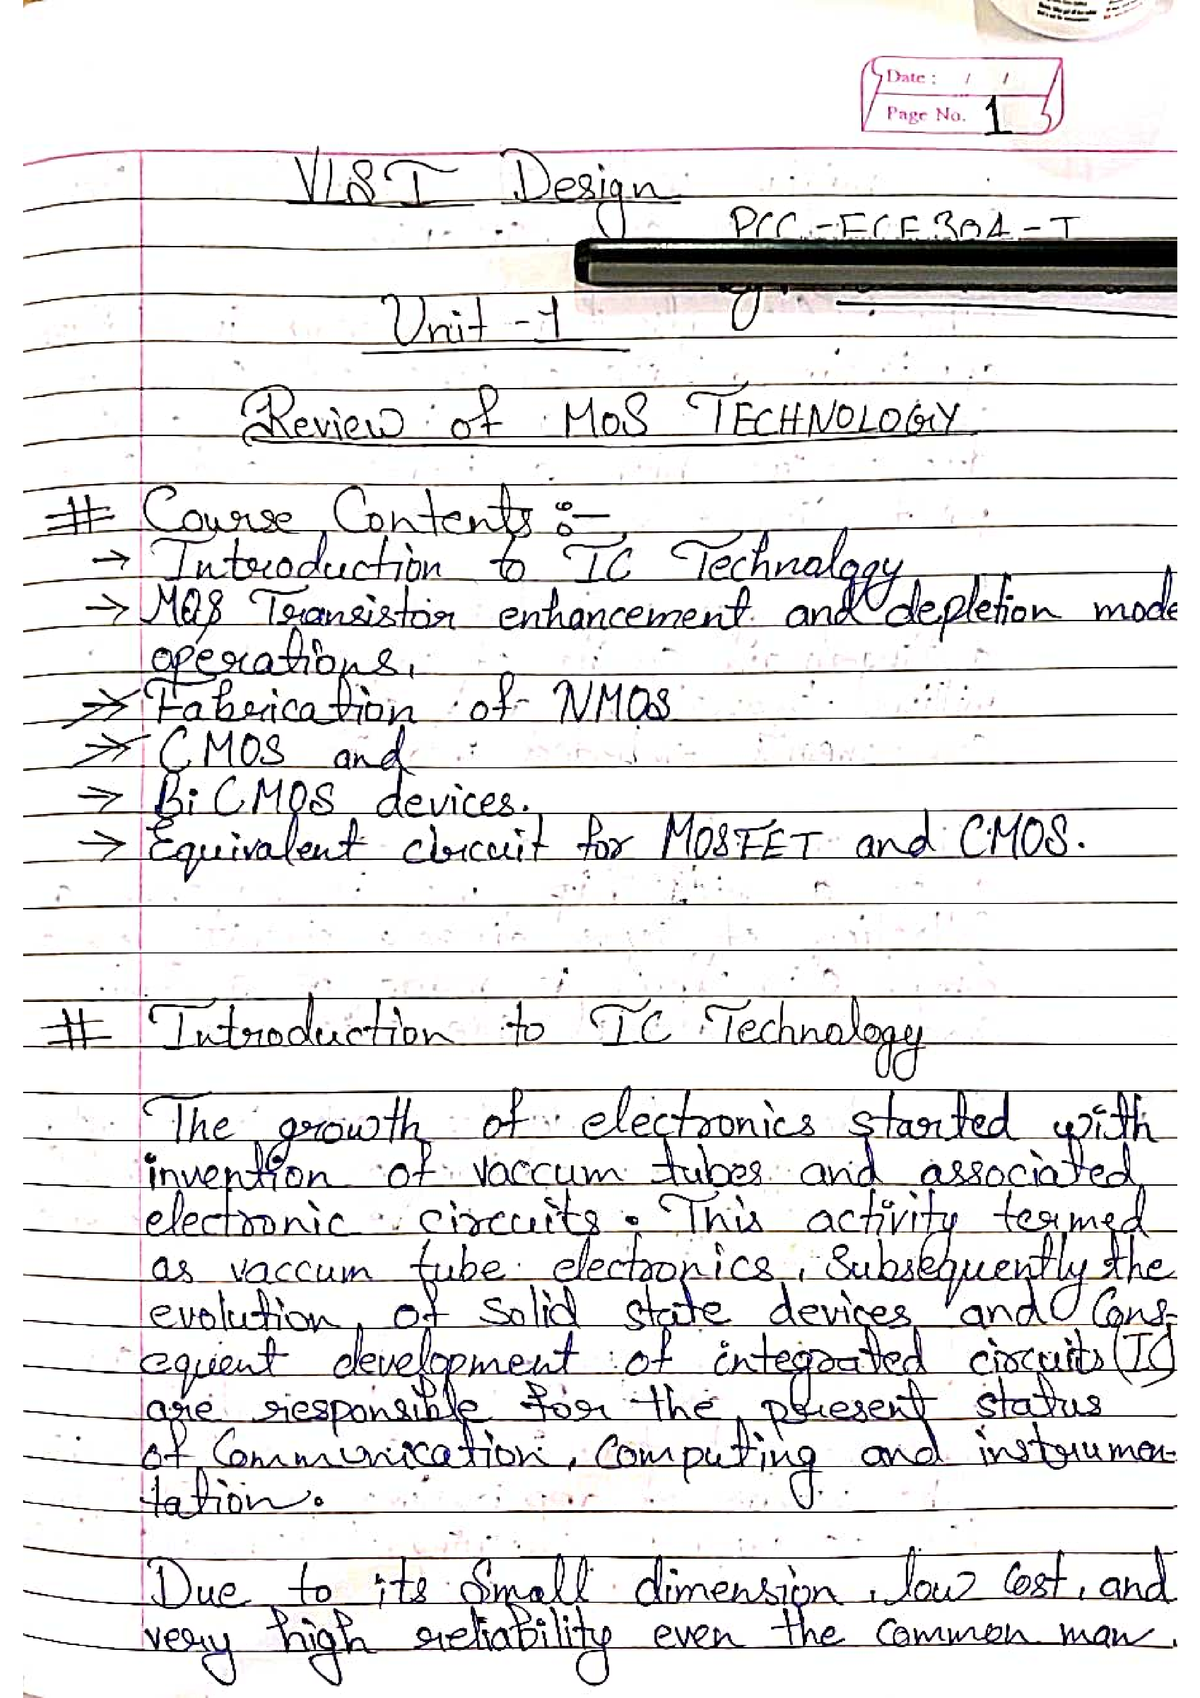 Date : / /
Page No. 1
VLSI Design
PCC-ECE304-T
Unit -1
Review of MOS TECHNOLOGY
# Course Contents :-
→ Introduction to IC Technology
→ MOS Transistor enhancement and depletion mode
operations,
→ Fabrication of NMOS
→ CMOS and
→ BiCMOS devices.
→ Equivalent circuit for MOSFET and CMOS.
# Introduction to IC Technology
The growth of electronics started with
invention of vaccum tubes and associated
electronic circuits. This activity termed
as vaccum tube electronics, Subsequently the
evolution of Solid state devices and Cons-
equent development of integrated circuits (IC)
are responsible for the present status
of Communication, Computing and instrumen-
tation.
Due to its Small dimension, low Cost, and
very high reliability even the common man.